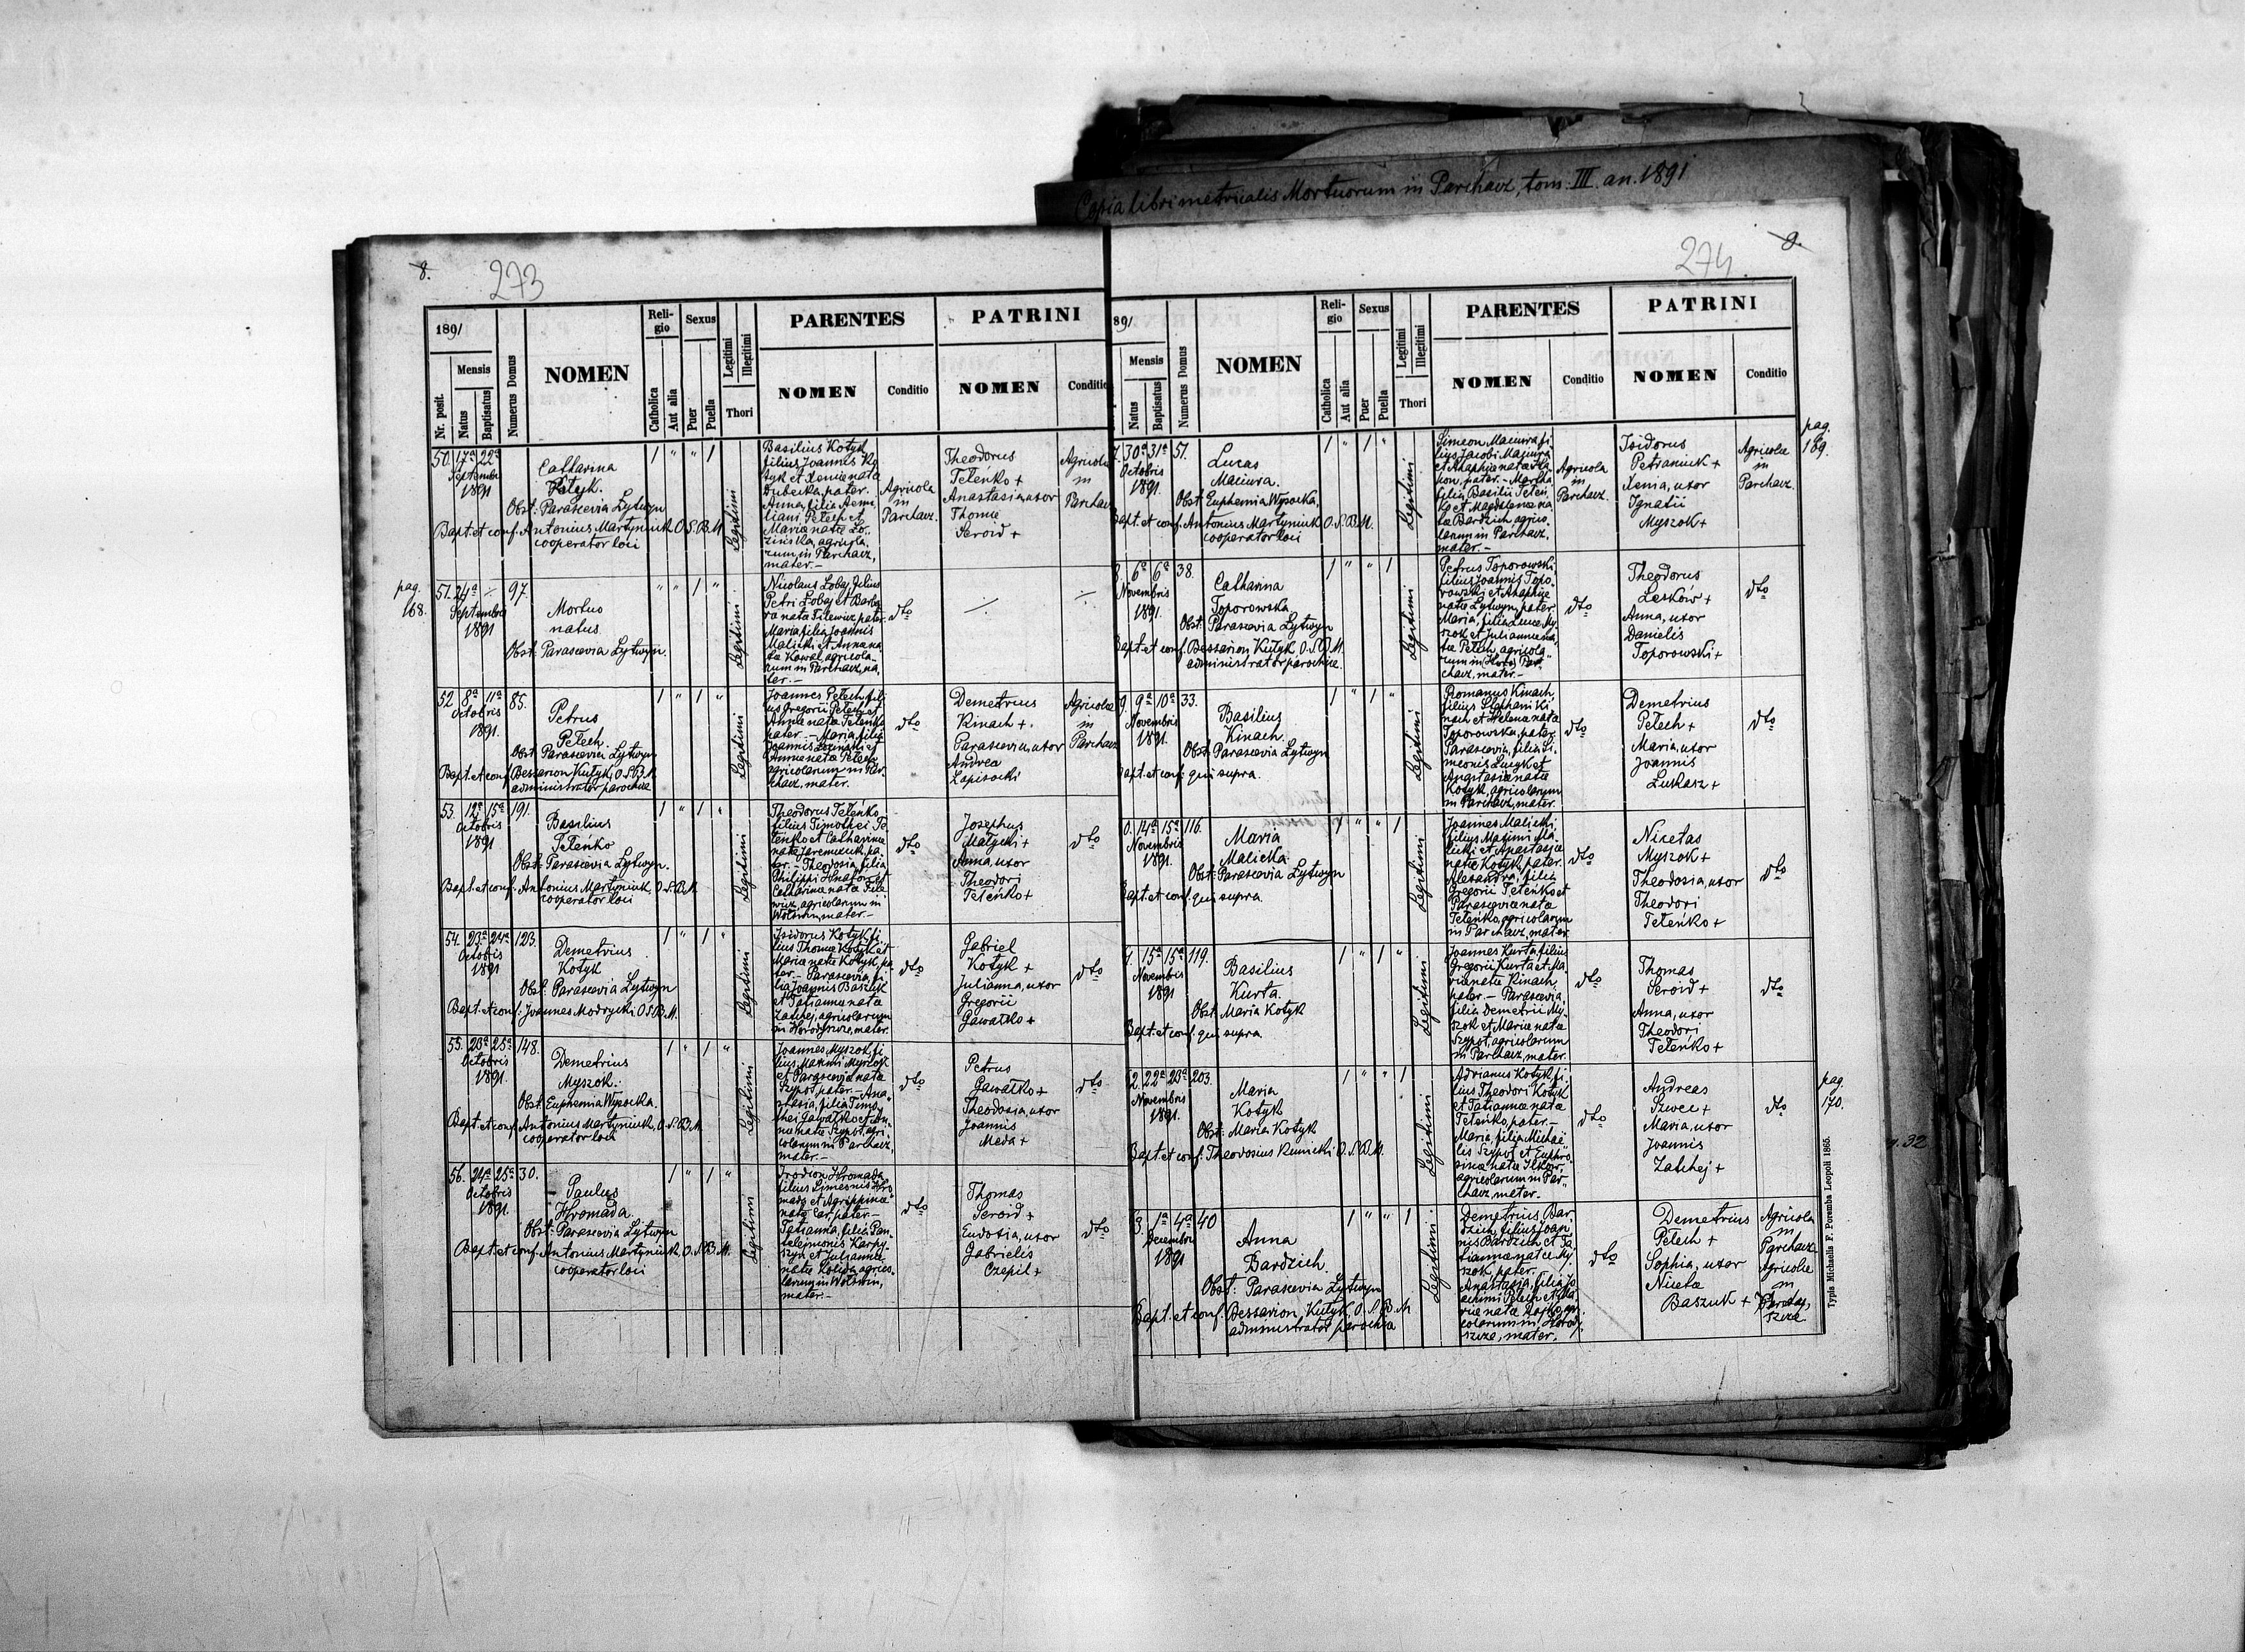 Copia libri metricalis Mortuorum in Parchacz, tom. III. an. 1891
8.
273
1891
Nr. posit.
Mensis
Natus
Baptisatus
Numerus Domus
NOMEN
Religio
Catholica
Aut alia
Sexus
Puer
Puella
Legitimi
Illegitimi
Thori
PARENTES
NOMEN
Conditio
PATRINI
NOMEN
Conditio
50. 17a 22a
Septembris
1891
Catharina
Kotyk.
Obst: Parascevia Lytwyn
Bapt. et conf. Antonius Martyniuk O.S.B.M.
cooperator loci
Legitimi
Basilius Kotyk
filius Joannis Ko
tyk et Xeniæ nata
Dubecka, pater.
Anna, filia Aemi
liani Petech et
Mariæ natæ Ło
zińska, agricola
rum in Parchacz,
mater.-
Agricola
in
Parchacz.
Theodorus
Teteńko +
Anastasia, uxor
Thomæ
Seroid +
Agricolæ
in
Parchacz
pag.
168.
51. 24a ÷ 97.
Septembris
1891
Mortuo
natus
Obst: Parascevia Lytwyn.
Legitimi
Nicolaus Łobaj, filius
Petri Łobaj et Barba
ra nata Filewicz, pater.
Maria filia Joannis
Malicki et Anna na
ta Kowal, agricola-
rum in Parchacz, ma
ter.-
dto
52. 8a 11a 85.
Octobris
1891.
Petrus
Petech
Obst: Parascevia Lytwyn
Bapt. et conf. Bessarion Kutyk, O.S.B.M.
administrator parochiæ
Legitimi
Joannes Petech fili
us Gregorii Petech et
Annæ nata Teteńko
pater.- Maria, filia
Joannis Łozinski et
Annæ nata Petech
agricolarum in Par-
chacz, mater.
dto
Demetrius
Kinach +.
Parascevia, uxor
Andreæ
Zapisocki
Agricolæ
in
Parchacz
53. 12a 15a 191.
Octobris
1891
Basilius
Teteńko
Obst: Parascevia Lytwyn.
Bapt. et conf. Antonius Martyniuk, O.S.B.M.
cooperator loci
Legitimi
Theodorus Teteńko
filius Timothei Te
teńko et Catharinæ
nata Jaremczuk, pa
ter.- Theodosia, filia
Philippi Hnatów et
Catharinæ nata File
wicz, agricolarum in
Wolswin, mater.-
dto
Josephus
Matycki +
Anna, uxor
Theodori
Teteńko +
dto
54. 23a 24a 123.
Octobris
1891
Demetrius
Kotyk
Obst: Parascevia Lytwyn
Bapt. et conf: Joannes Modrycki O.S.B.M.
Legitimi
Isidorus Kotyk fi
lius Thomæ Kotyk et
Mariæ natæ Kotyk, pa
ter.- Parascevia, fi
lia Joannis Baszuk
et Tatiannæ natæ
Zatchej, agricolarum
in Horodyszcze, mater.
dto
Gabriel
Kotyk +
Julianna, uxor
Gregorii
Gawałko +
dto
55. 23a 25a 148.
Octobris
1891.
Demetrius
Myszok.
Obst: Euphemia Wysocka.
Bapt. et conf. Antonius Martyniuk, O.S.B.M.
cooperator loci
Legitimi
Joannes Myszok, fi
lius Maximi Myszok
et Parascevia nata
Szypot, pater.- Ana-
stasia, filia Timo
thei Gawałko et An-
næ natæ Szypot, agri
colarum in Parchacz,
mater.-
dto
Petrus
Gawałko +
Theodosia, uxor
Joannis
Meda +
dto
56. 24a 25a 30.
Octobris
1891.
Paulus
Hromada.
Obst: Parascevia Lytwyn
Bapt. et conf. Antonius Martyniuk, O.S.B.M.
cooperator loci
Legitimi
Irodion Hromada
filius Simeonis Hro
mada et Agrippinæ
natæ Car, pater.-
Tatianna, filia Pan
teleimonis Karpy
szyn et Julianna
natæ Kolida, agrico
larum in Wolswin,
mater.-
dto
Thomas
Seroid +
Eudosia, uxor
Gabrielis
Czepil +
dto
9.
274
891
Mensis
Natus
Baptisatus
Numerus Domus
NOMEN
Religio
Catholica
Aut alia
Sexus
Puer
Puella
Legitimi
Illegitimi
Thori
PARENTES
NOMEN
Conditio
PATRINI
NOMEN
Conditio
pag.
169.
7. 30a 31a 51.
Octobris
1891.
Lucas
Maciura.
Obst: Euphemia Wysocka,
Bapt. et conf. Antonius Martyniuk O.S.B.M.
cooperator loci
Legitimi
Simeon Maciura fi
lius Jacobi Maciura
et Ahaphiæ natæ Ila
kon, pater.- Martha
filia Basilii Teteń
ko et Magdalenæ na
tæ Bardzich agrico
larum in Parchacz,
mater.-
Agricola
in
Parchacz.
Isidorus
Petraniuk +
Xenia, uxor
Ignatii
Myszok +
Agricolæ
in
Parchacz.
8. 6a 6a 38.
Novembris
1891.
Catharina
Toporowska
Obst: Parascevia Lytwyn
Bapt. et conf. Bessarion Kutyk, O.S.B.M.
administrator parochiæ.
Legitimi
Petrus Toporowski
filius Joannis Topo
rowski et Ahaphiæ
natæ Lytwyn, pater.
Maria, filia Lucæ My
szok et Juliannæ na
tæ Petech, agricola-
rum in Par
chacz, mater.-
dto
Theodorus
Leskow +
Anna, uxor
Danielis
Toporowski +
dto
9. 9a 10a 33.
Novembris
1891.
Basilius
Kinach.
Obst: Parascevia Lytwyn
Bapt. et conf: qui supra.
Legitimi
Romanus Kinach
filius Stephani Ki
nach et Helenæ nata
Toporowska, pater
Parascevia, filia Si
meonis Lucyk et
Anastasiæ natæ
Kotyk, agricolarum
in Parchacz, mater.
dto
Demetrius
Petech +
Maria, uxor
Joannis
Lukasz +
dto
0. 14a 15a 116.
Novembris
1891.
Maria
Malicka
Obst: Parascevia Lytwyn
Bapt. et conf. qui supra.
Legitimi
Joannes Malicki,
filius Maximi Ma
licki et Anastasiæ
natæ Kotyk, pater.
Alexandra, filia
Gregorii Teteńko et
Parasceviæ nata
Teteńko, agricolarum
in Parchacz, mater
dto
Nicetas
Myszok +
Theodosia, uxor
Theodori
Teteńko +
dto
1. 15a 15a 119.
Novembris
1891
Basilius
Kurta.
Obst: Maria Kotyk
Bapt. et conf. qui supra.
Legitimi
Joannes Kurta, filius
Gregorii Kurta et Ma
riæ natæ Kinach,
pater.- Parascevia,
filia Demetrii My-
szok et Mariæ nata
Szypot, agricolarum
in Parchacz, mater.
dto
Thomas
Seroid +
Anna, uxor
Theodori
Teteńko +
dto
pag.
170.
2. 22a 23a 203.
Novembris
1891.
Maria
Kotyk
Obst: Maria Kotyk
Bapt. et conf. Theodosius Kunicki O.S.B.M.
Legitimi
Adrianus Kotyk, fi
lius Theodori Kotyk
et Tatiannæ natæ
Teteńko, pater.-
Maria, filia Michaë
lis Szypot et Euphro
sinæ natæ Ilkow,
agricolarum in Par-
chacz, mater.
dto
Andreas
Szwec +
Maria, uxor
Joannis
Zatchej +
dto
3. 1a 4a 40
Decembris
1891
Anna
Bardzich.
Obst: Parascevia Lytwyn
Bapt. et conf. Bessarion Kutyk, O.S.B.M
administrator parochiæ
Legitimi
Demetrius Bar-
dzich, filius Joan
nis Bardzich et Ta
tiannæ natæ My
szok, pater.
Anastasia, filia Jo
achimi Petech et Ma
riæ nata Zajko, agri
colarum in Horody
szcze, mater.
dto
Demetrius
Petech +
Sophia, uxor
Nicetæ
Baszuk +
Agricola
in
Parchacz
Agricolæ
in
Horody
szcze
Typis Michaelis F. Poremba Leopoli 1865.
32